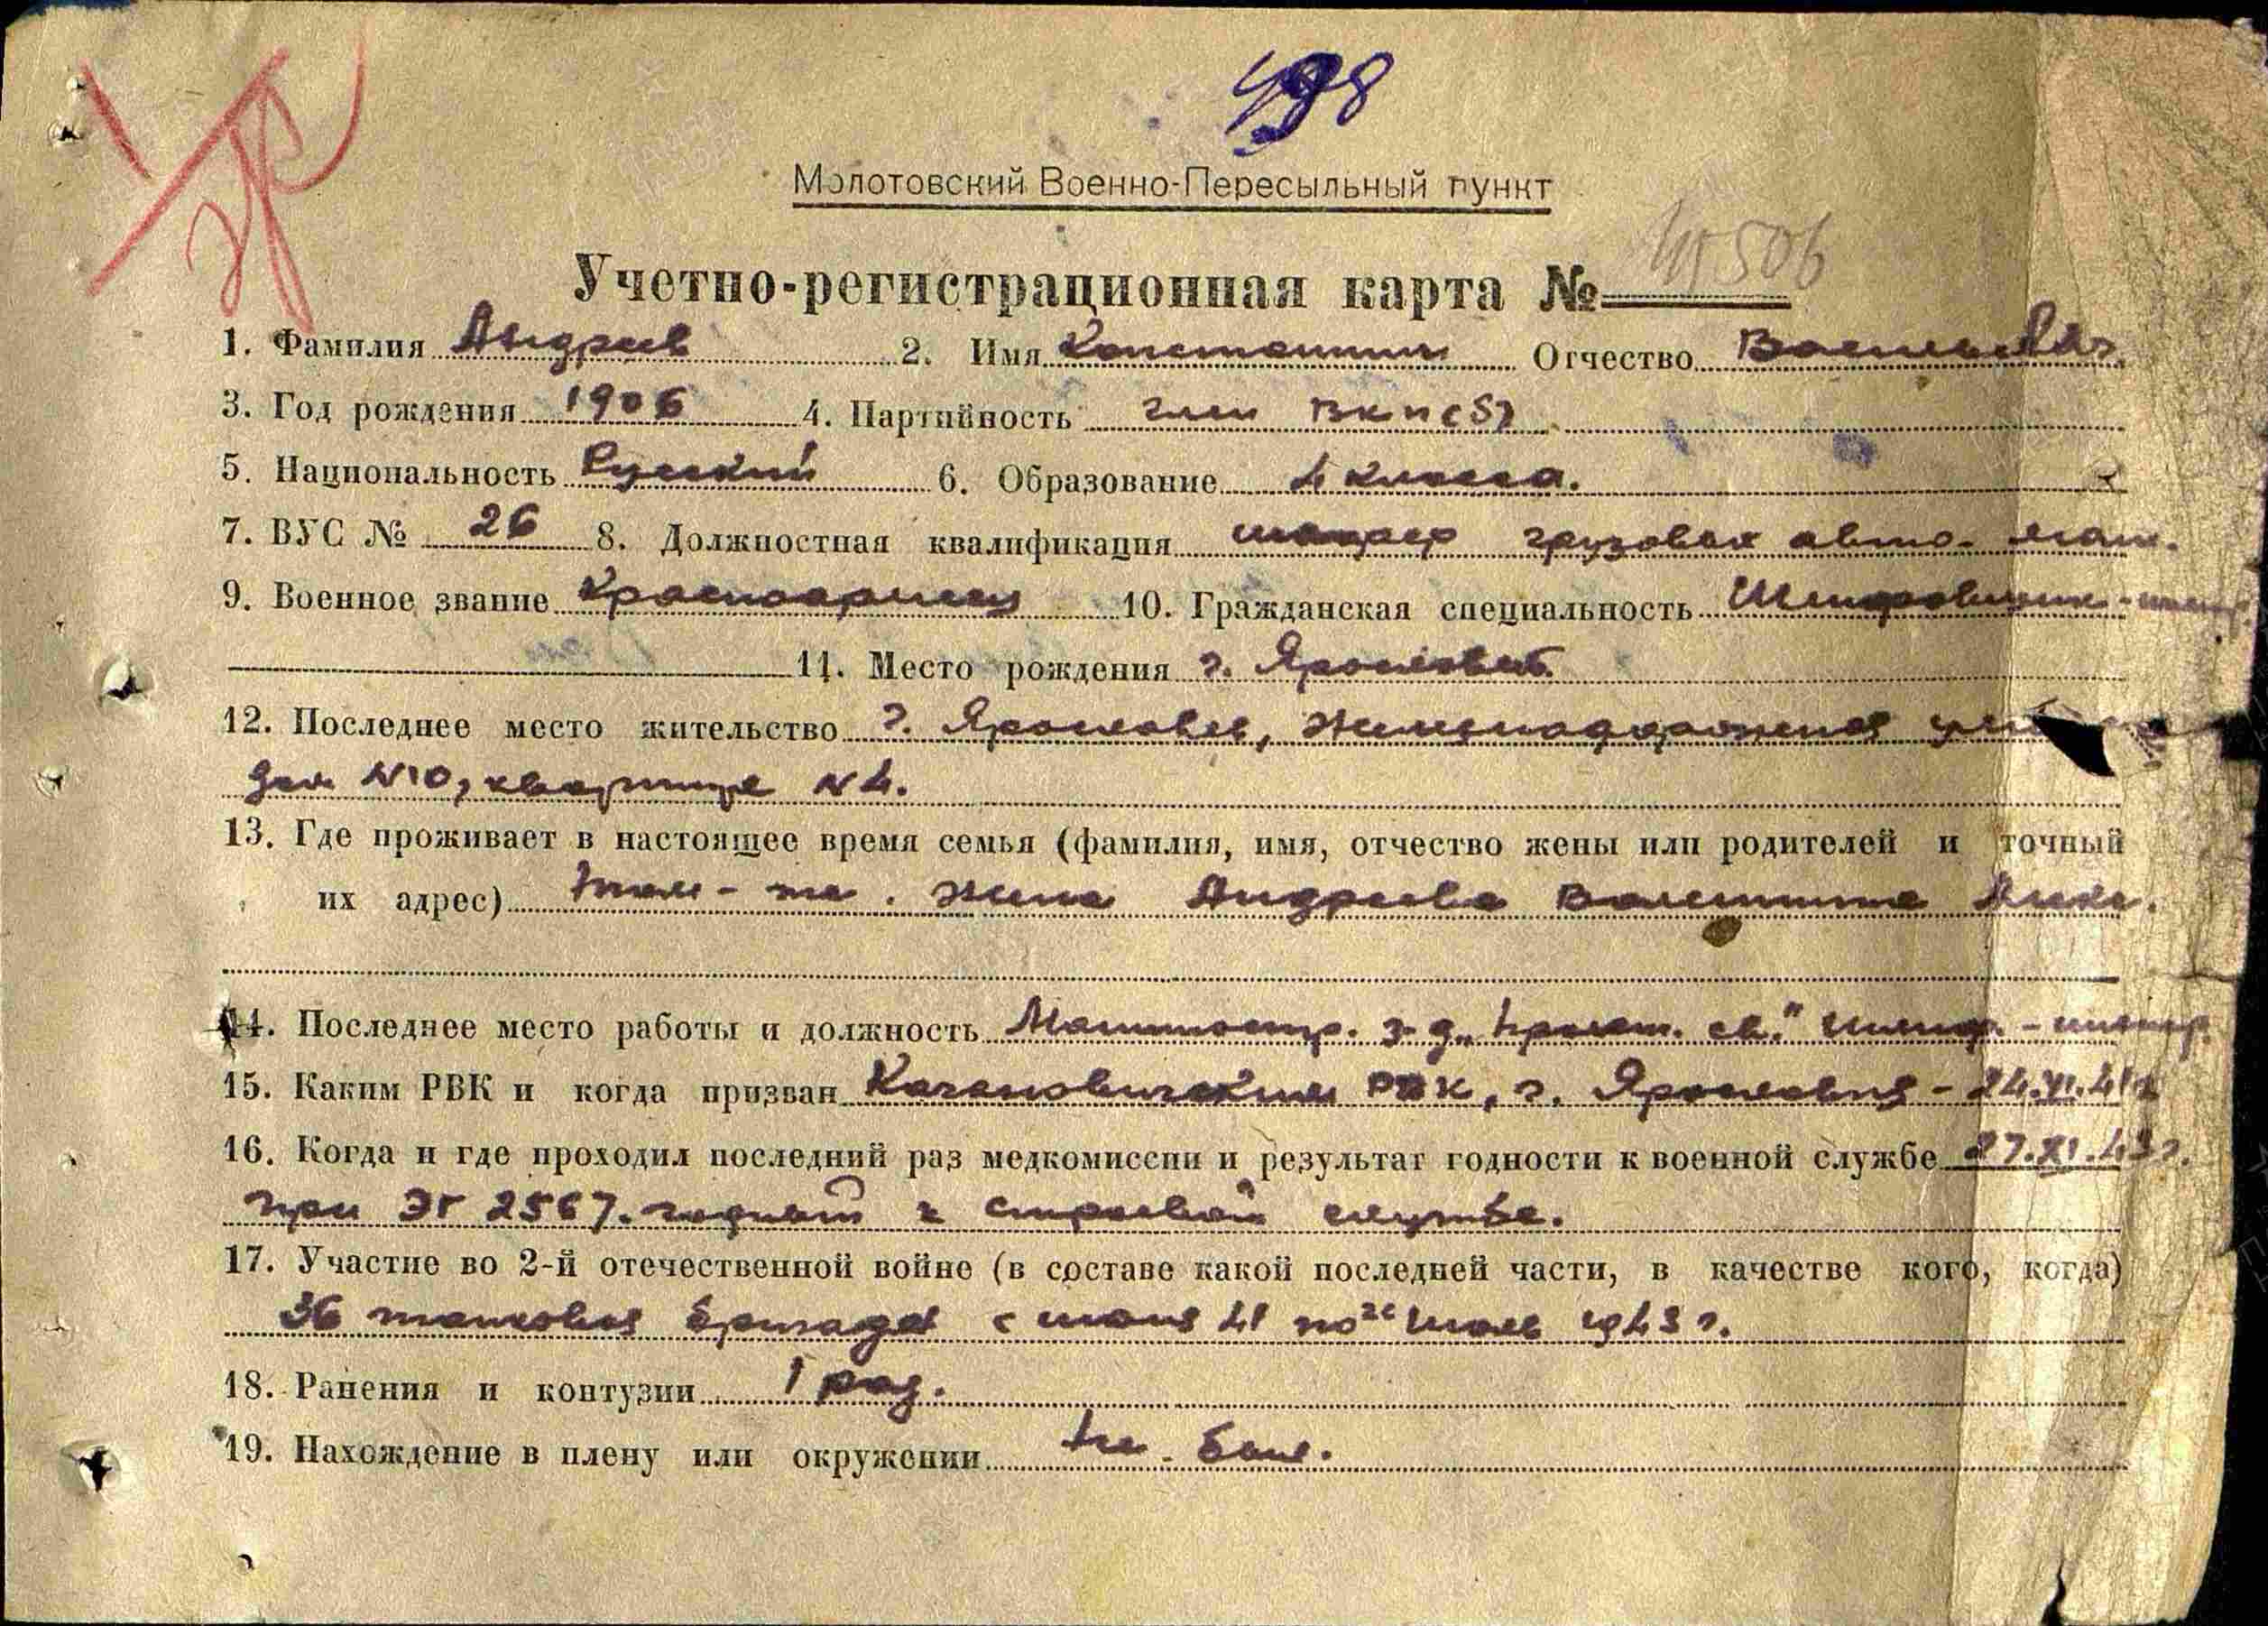 498
Молотовский Военно-Пересыльный пункт
Учетно-регистрационная карта № 45506
1. Фамилия Андреев 2. Имя Константин Отчество Васильевич
3. Год рождения 1906 4. Партийность член ВКП(б)
5. Национальность Русский 6. Образование 4 класса.
7. ВУС № 26 8. Должностная квалификация шофер грузовых авто-маш.
9. Военное звание Красноармеец 10. Гражданская специальность
11. Место рождения г. Ярославль
12. Последнее место жительство г. Ярославль, Железнодорожная
дом N10, квартира N 4.
13. Где проживает в настоящее время семья (фамилия, имя, отчество жены или родителей и точный
их адрес) Там-же. Жена Андреева Валентина Алек.
14. Последнее место работы и должность Машиностр. з-д
15. Каким РВК и когда призван Кагановичским РВК, г. Ярославля - 24.VI.41г
16. Когда и где проходил последний раз медкомиссии и результат годности к военной службе 27.XI.43г.
при ЭГ 2567. годный к строевой службе.
17. Участие во 2-й отечественной войне (в составе какой последней части, в качестве кого, когда)
36 танковая бригада с июня 41 по июль 1943 г.
18. Ранения и контузии 1 раз.
19. Нахождение в плену или окружении не был.